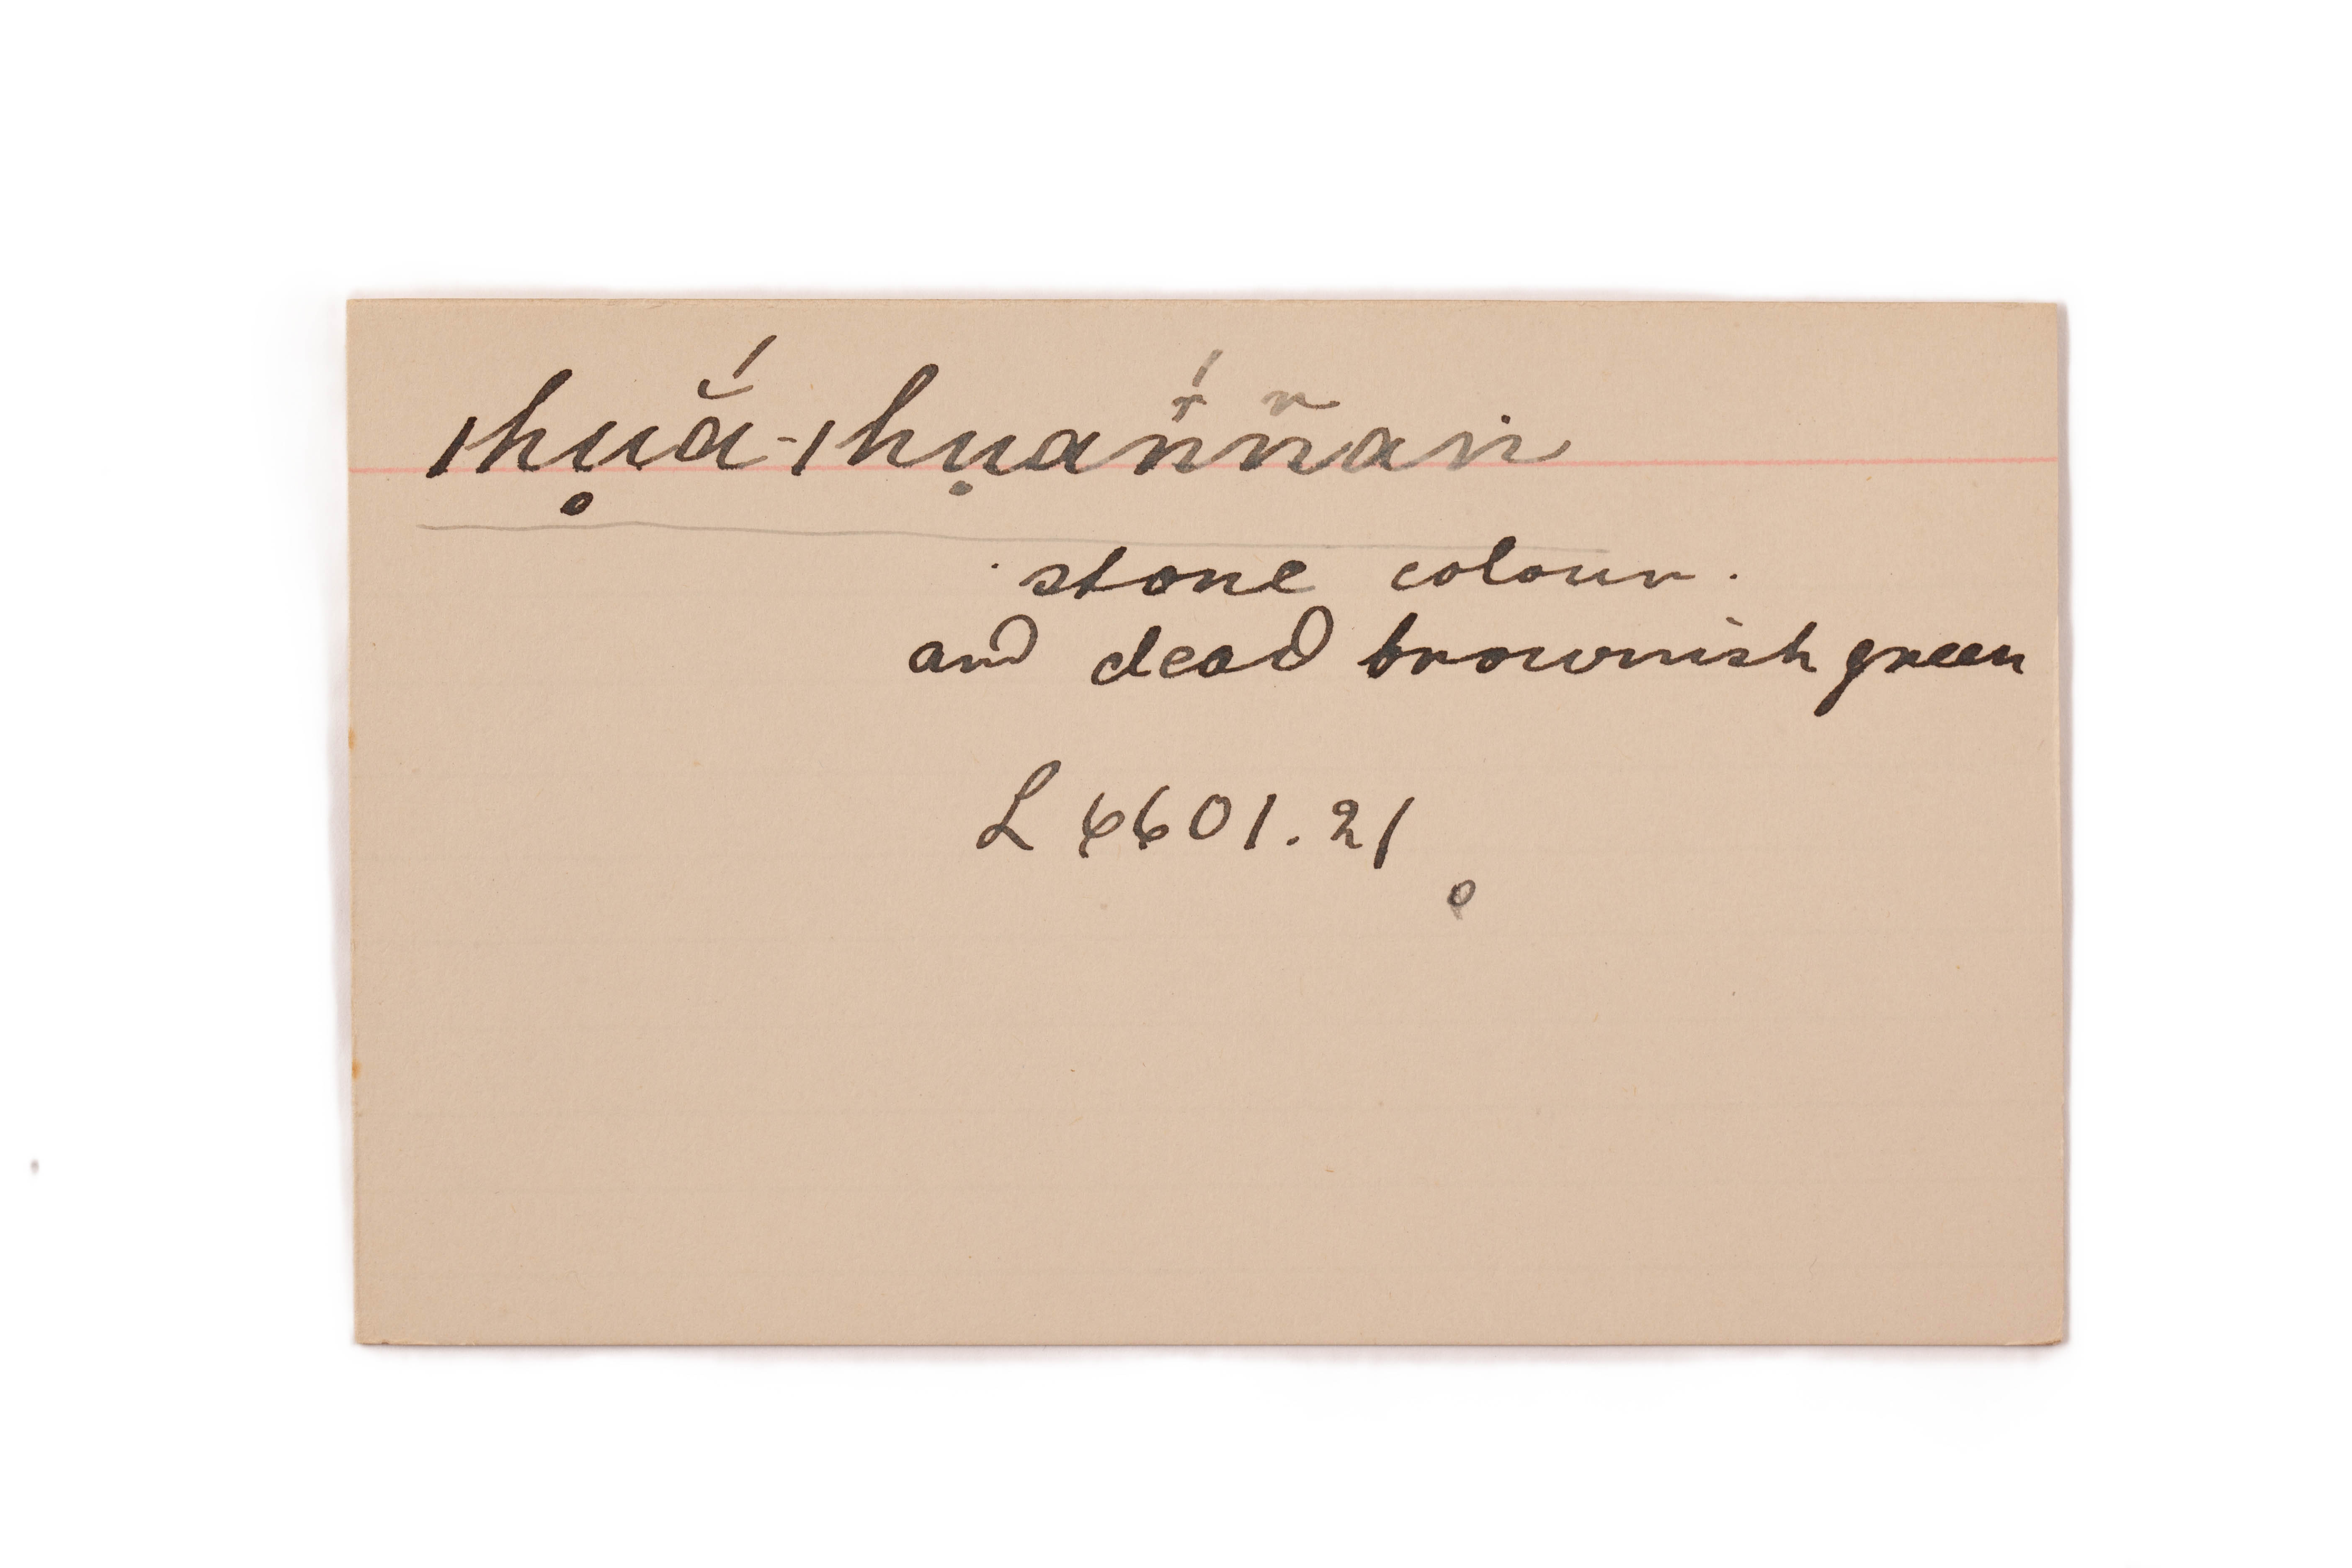 ǀhu̥ắ-ǀhu̥aṅ́n̄aṅ
stone colour.
and dead brownish green
L 6601.21